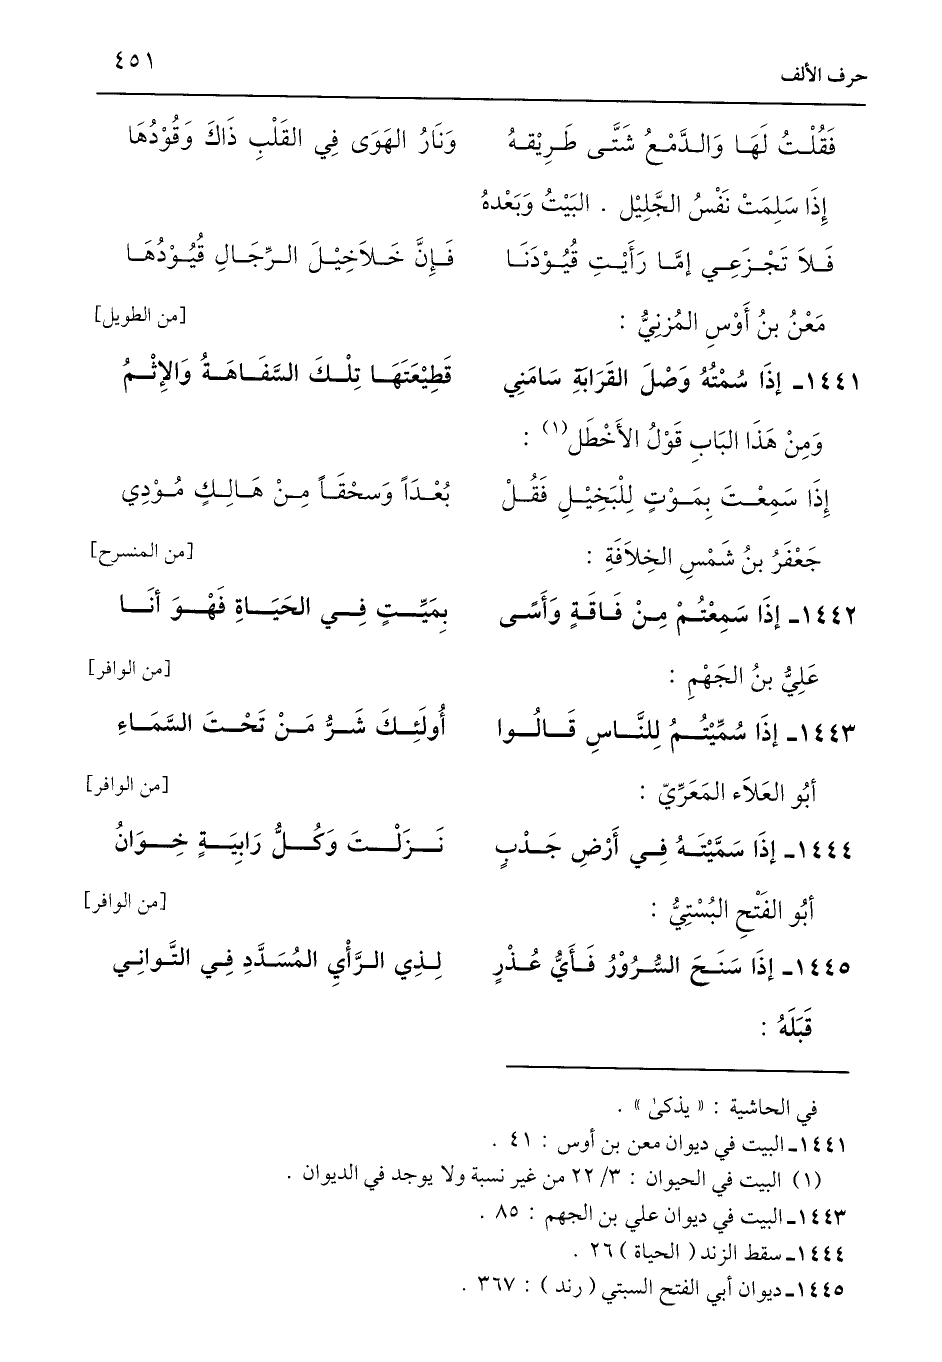 حرف الألف ٤٥١
فَقُلْتُ لَهَا وَالدَّمْعُ شَتَّى طَرِيْقهُ وَنَارُ الهَوَى فِي القَلْبِ ذَاكَ وَقُوْدُهَا
إِذَا سَلِمَتْ نَفْسُ الجَّلِيْلِ . البَيْتُ وَبَعْدهُ
فَلاَ تَجْزَعِي إمَّا رَأَيْتِ قُيُوْدَنَا فَإِنَّ خَلاَخِيْلَ الرِّجَالِ قُيُوْدُهَا
مَعْنُ بنُ أَوْسِ المُزنِيُّ : [من الطويل]
١٤٤١ـ إِذَا سُمْتُهُ وَصْلَ القَرَابَةِ سَامَنِي قَطِيْعَتَهَا تِلْكَ السَّفَاهَةُ وَالإِثْمُ
وَمِنْ هَذَا البَابِ قَوْلُ الأَخْطَل(١) :
إِذَا سَمِعْتَ بِمَوْتٍ لِلْبَخِيْلِ فَقُلْ بُعْدَاً وَسحْقَاً مِنْ هَالِكٍ مُوْدِي
جَعْفَرُ بنُ شَمْسِ الخِلاَفَةِ : [من المنسرح]
١٤٤٢ـ إِذَا سَمِعْتُمْ مِنْ فَاقَةٍ وَأَسًى بِمَيِّتٍ فِي الحَيَاةِ فَهْوَ أنَا
عَلِيُّ بنُ الجَهْمِ : [من الوافر]
١٤٤٣ـ إِذَا سُمِّيْتُمُ لِلنَّاسِ قَالُوا أُولَئِكَ شَرُّ مَنْ تَحْتَ السَّمَاءِ
أبُو العَلاَء المَعَرِّيّ : [من الوافر]
١٤٤٤ـ إِذَا سَمَّيْتَهُ فِي أَرْضِ جَدْبٍ نَزَلْتَ وَكُلُّ رَابِيَةٍ خِوَانُ
أبُو الفَتْحِ البُسْتِيُّ : [من الوافر]
١٤٤٥ـ إِذَا سَنَحَ السُّرُوْرُ فَأَيُّ عُذْرٍ لِذِي الرَّأْيِ المُسَدَّدِ فِي التَّوانِي
قَبَلَهُ :
في الحاشية : « يذكىٰ » .
١٤٤١ـ البيت في ديوان معن بن أوس : ٤١ .
(١) البيت في الحيوان : ٣/ ٢٢ من غير نسبة ولا يوجد في الديوان .
١٤٤٣ـ البيت في ديوان علي بن الجهم : ٨٥ .
١٤٤٤ـ سقط الزند ( الحياة ) ٢٦ .
١٤٤٥ـ ديوان أبي الفتح السبتي ( رند ) : ٣٦٧ .